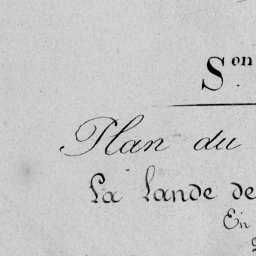 S.en
Plan du
La lande de
En